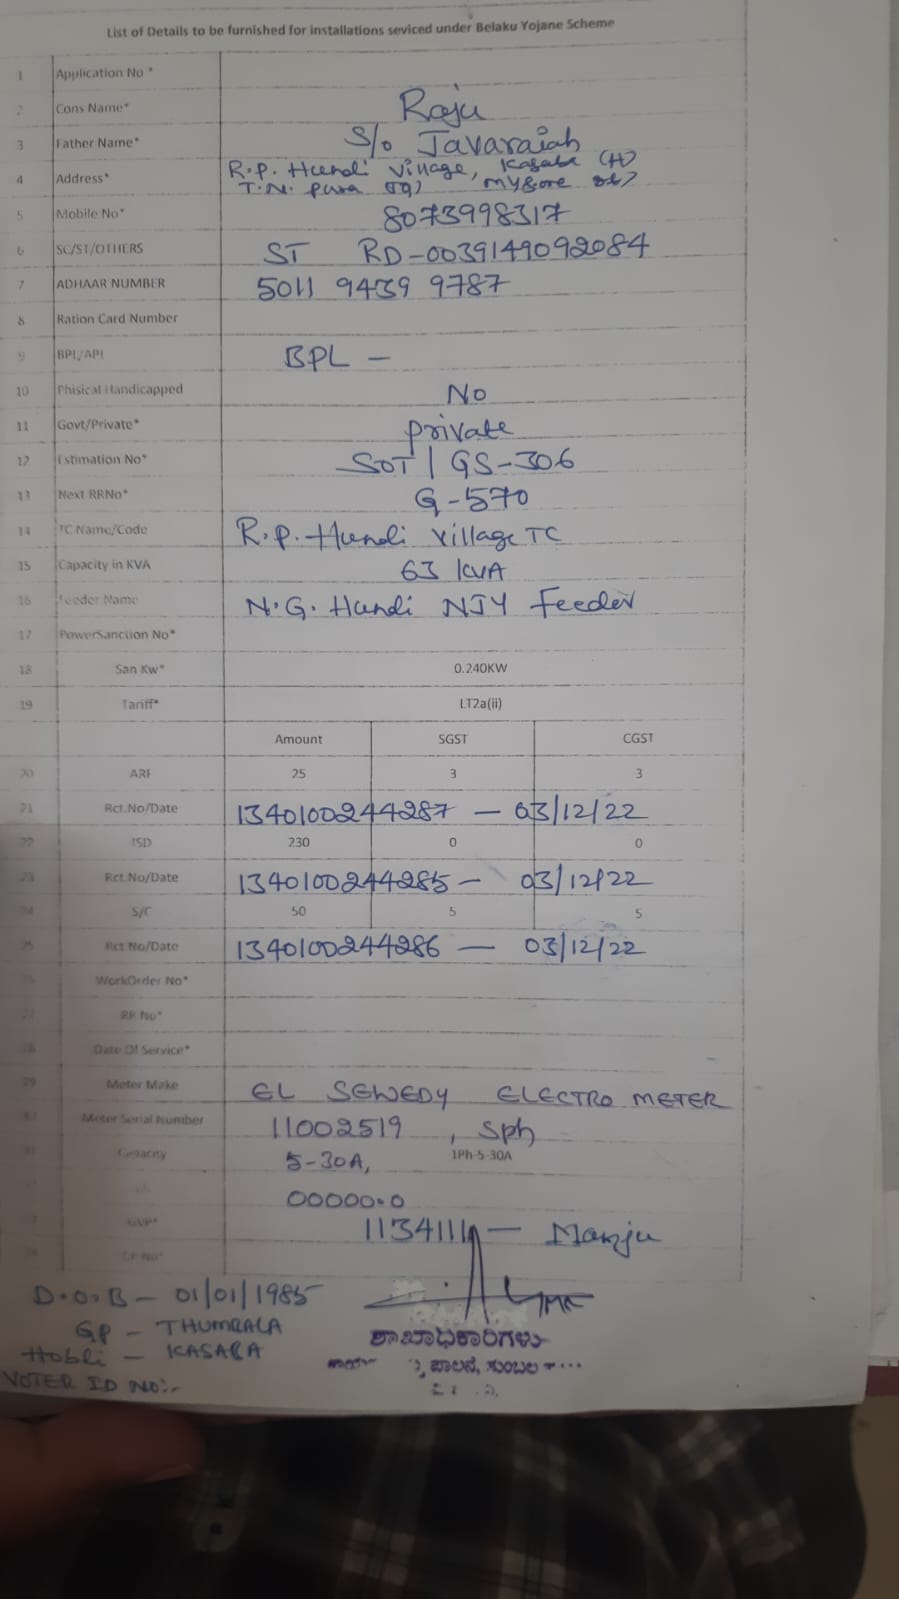 List of Details to be furnished for installations seviced under Belaku Yojane Scheme
1 Application No *
2 Cons Name* Raju
3 Father Name* S/o Javaraiah
4 Address* R.P. Hundi Village, Kasaba (H)
T.N. pura (Tq) mysore
5 Mobile No* 8073998317
6 SC/ST/OTHERS ST RD-0039149092084
7 ADHAAR NUMBER 5011 9439 9787
8 Ration Card Number
9 BPL/APL BPL –
10 Phisical Handicapped No
11 Govt/Private* private
12 Estimation No* SOT | GS-306
13 Next RRNo* G-570
14 TC Name/Code R.P. Hundi Village TC
15 Capacity in KVA 63 KVA
16 Feeder Name N.G. Hundi NJY Feeder
17 PowerSanction No*
18 San Kw* 0.240KW
19 Tariff* LT2a(ii)
Amount SGST CGST
20 ARF 25 3 3
21 Rct.No/Date 1340100244287 – 03/12/22
22 ISD 230 0 0
23 Rct.No/Date 1340100244285 – 03/12/22
24 S/C 50 5 5
25 Rct.No/Date 1340100244286 – 03/12/22
26 WorkOrder No*
27 RR No*
28 Date Of Service*
29 Meter Make EL SEWEDY ELECTRO METER
Meter Serial Number 11002519 , Sph
Capacity 5-30A, 1Ph-5-30A
000000.0
GVP* 1134111 – Manju
D.O.B – 01/01/1985
GP – THUMBALA
Hobli – KASABA
VOTER ID NO:-
ಶಾಖಾಧಿಕಾರಿಗಳು
ಪಾಲನೆ,